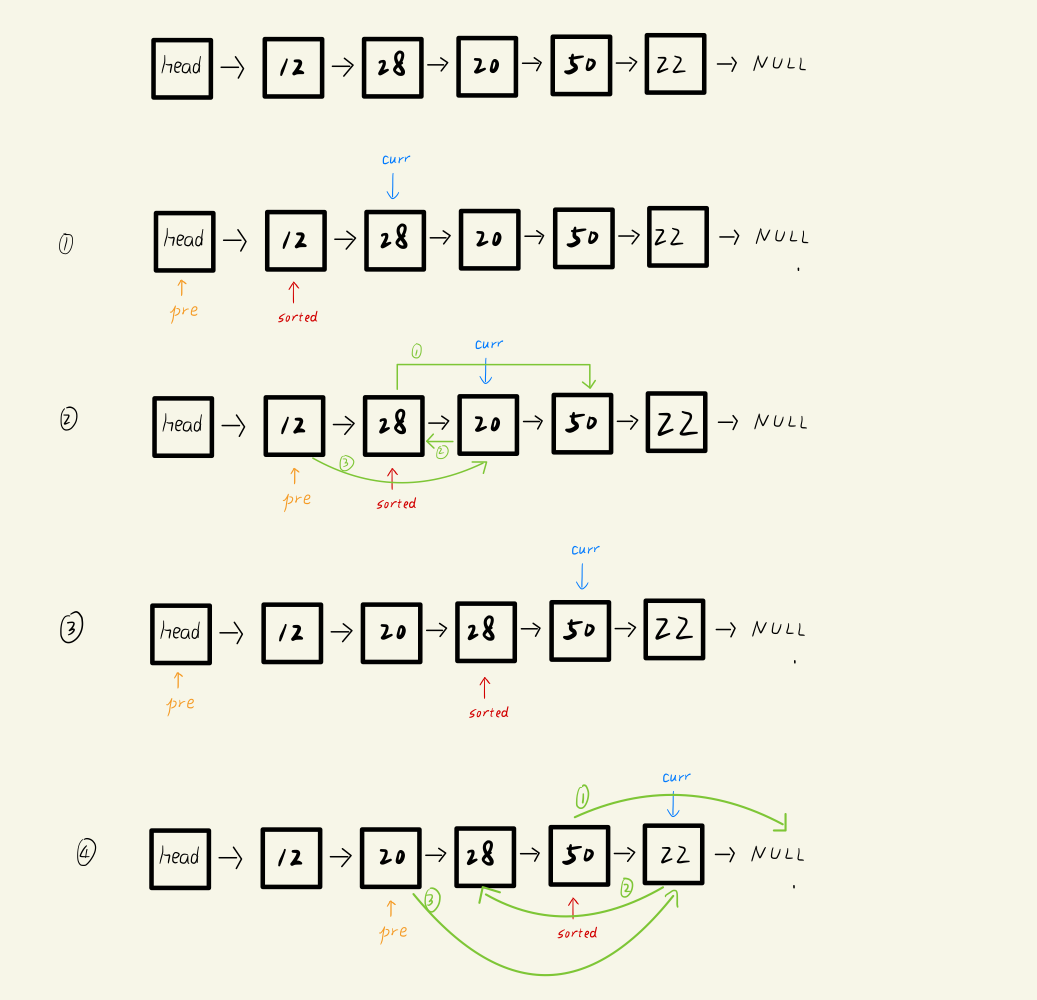 head → 12 → 28 → 20 → 50 → 22 → NULL
curr
① head → 12 → 28 → 20 → 50 → 22 → NULL
pre sorted
① curr
② head → 12 → 28 → 20 → 50 → 22 → NULL
③ ②
pre sorted
curr
③ head → 12 → 20 → 28 → 50 → 22 → NULL
pre sorted
① curr
④ head → 12 → 20 → 28 → 50 → 22 → NULL
③ ②
pre sorted